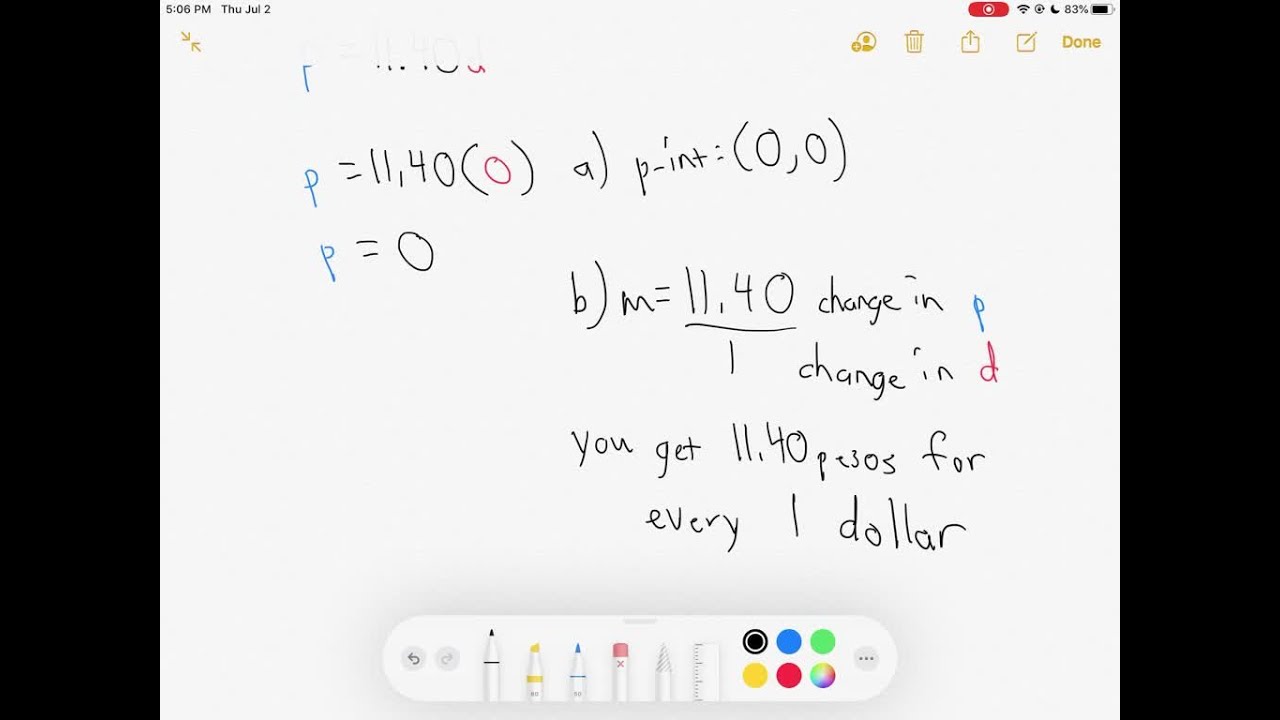 5:06 PM Thu Jul 2
83%
Done
p = 11.40d
p = 11.40(0) a) p-int: (0,0)
p = 0
b) m = 11.40 change in p
1 change in d
you get 11.40 pesos for
every 1 dollar
80
50